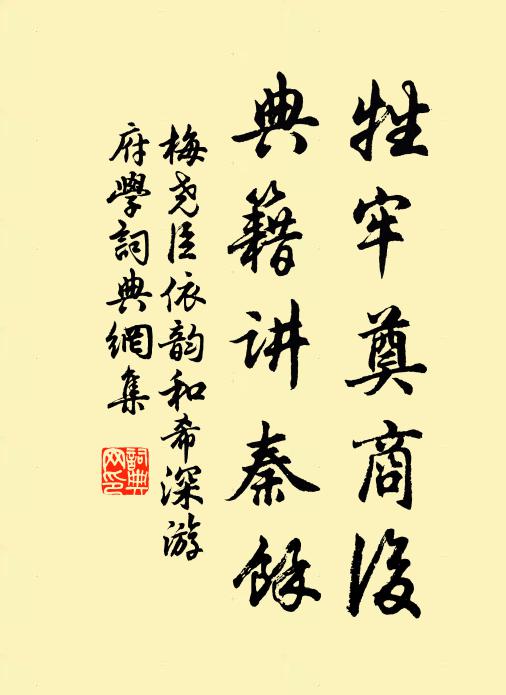 牲牢奠商後
典籍讲秦餘
梅尧臣依韵和希深游
府學詞典網集
詞典
网印